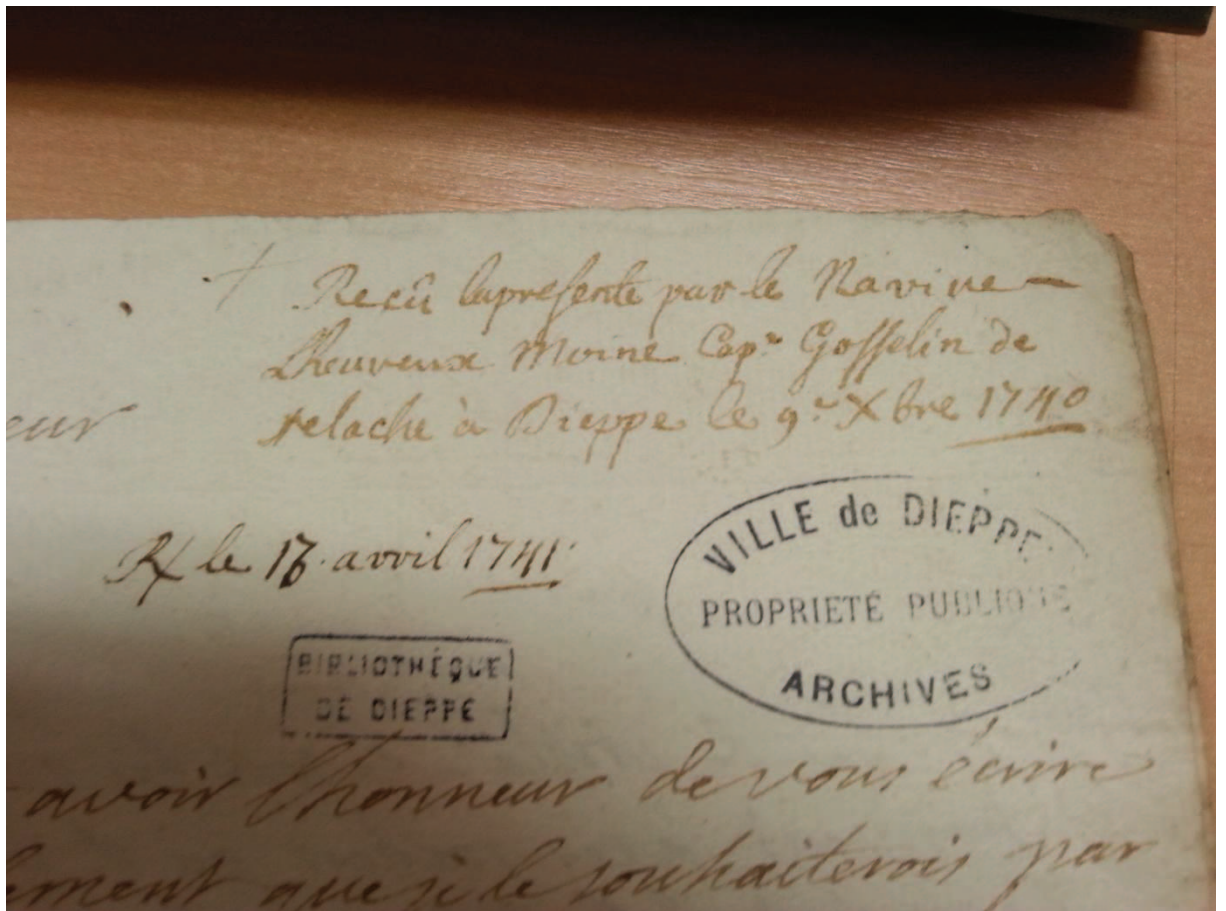 + Recû lapresente par le Navire
Lheureux Moine Cap.ⁿ Gosselin de
relache à Dieppe le 9.ᵉ Xbre 1740
eur
R le 18. avril 1741
VILLE de DIEPPE
PROPRIETÉ PUBLIQUE
ARCHIVES
BIBLIOTHÈQUE
DE DIEPPE
avoir lhonneur de vous écrire
lement que je le souhaiterois par